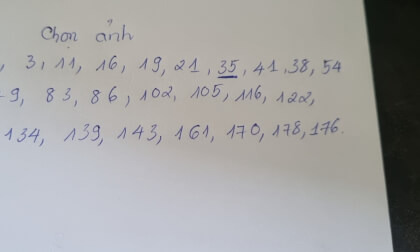 Chọn ảnh
, 3, 11, 16, 19, 21, 35, 41, 38, 54
9, 83, 86, 102, 105, 116, 122,
134, 139, 143, 161, 170, 178, 176.